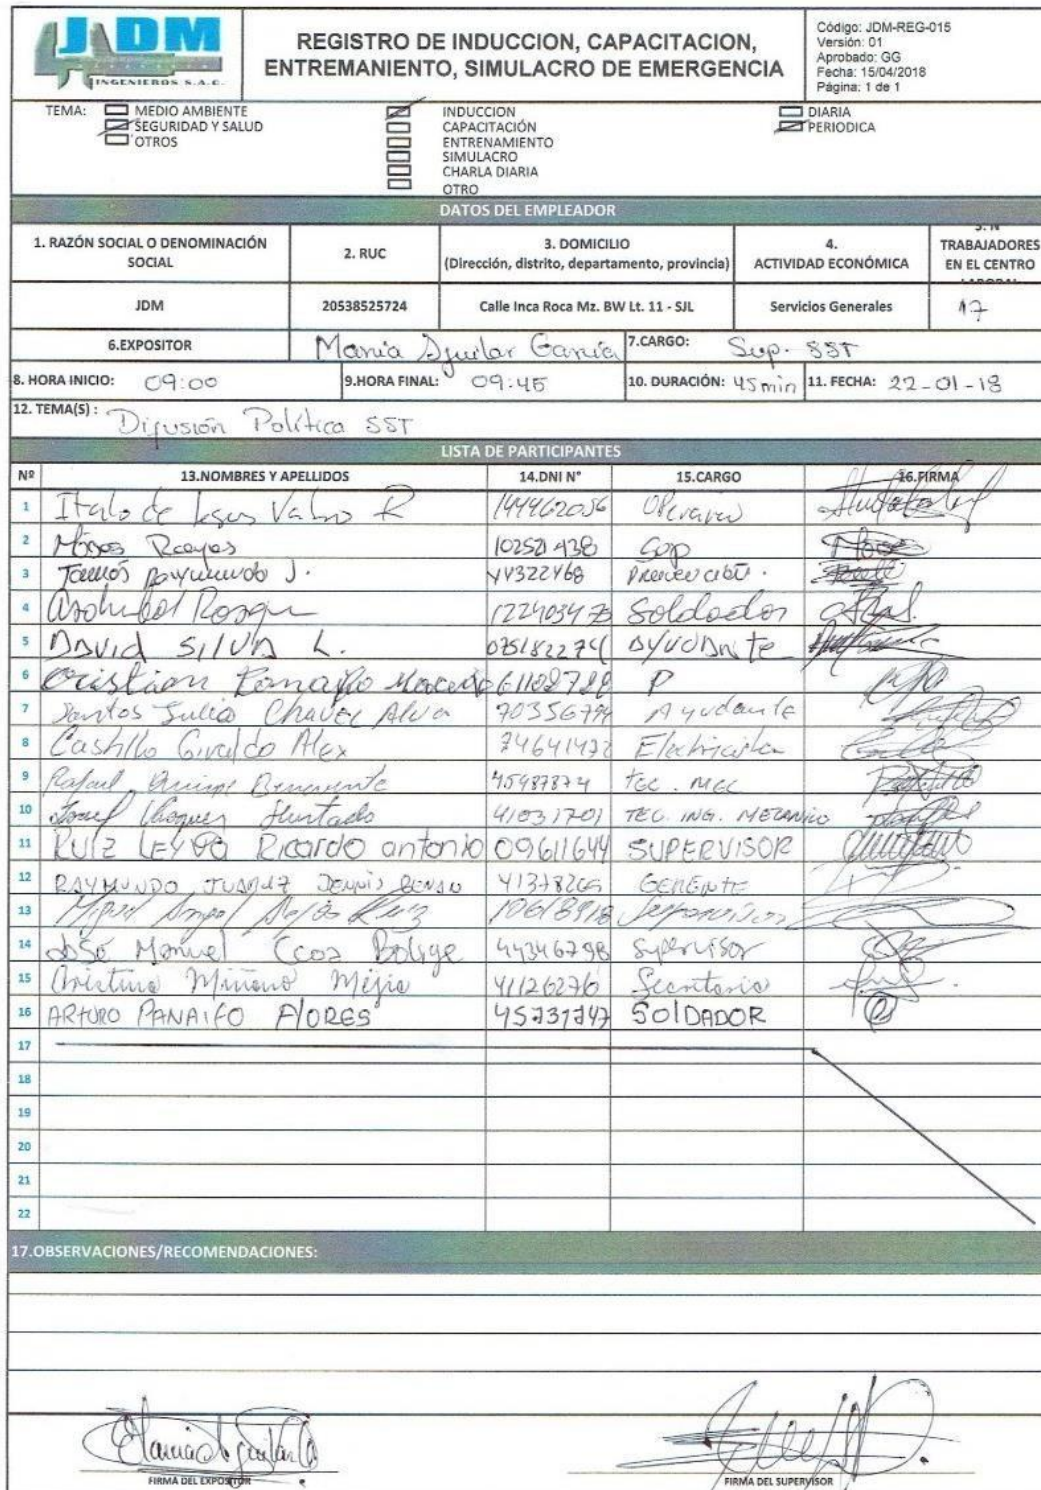 JDM
INGENIEROS S.A.C.
REGISTRO DE INDUCCION, CAPACITACION,
ENTREMANIENTO, SIMULACRO DE EMERGENCIA
Código: JDM-REG-015
Versión: 01
Aprobado: GG
Fecha: 15/04/2018
Página: 1 de 1
TEMA: MEDIO AMBIENTE
SEGURIDAD Y SALUD
OTROS
INDUCCION
CAPACITACIÓN
ENTRENAMIENTO
SIMULACRO
CHARLA DIARIA
OTRO
DIARIA
PERIODICA
DATOS DEL EMPLEADOR
1. RAZÓN SOCIAL O DENOMINACIÓN SOCIAL
2. RUC
3. DOMICILIO
(Dirección, distrito, departamento, provincia)
4.
ACTIVIDAD ECONÓMICA
TRABAJADORES
EN EL CENTRO
JDM 20538525724 Calle Inca Roca Mz. BW Lt. 11 - SJL Servicios Generales 17
6.EXPOSITOR Maria Aguilar Garcia 7.CARGO: Sup. SST
8. HORA INICIO: 09:00 9.HORA FINAL: 09:45 10. DURACIÓN: 45min 11. FECHA: 22-01-18
12. TEMA(S): Difusión Política SST
LISTA DE PARTICIPANTES
Nº 13.NOMBRES Y APELLIDOS 14.DNI N° 15.CARGO 16.FIRMA
1 Italo de R Operario
2 Reyes
3 Raymundo J.
4 Soldador
5 DAVID SILVA L. AYUDANTE
6 P
7 Santos Julio Chavez Alva 70356794 Ayudante
8 Castillo Giraldo Alex Electricista
9 Rafael TEC. MEC
10 Vasquez Hurtado 41031701 TEC. ING. MECANICO
11 RUIZ LEYVA Ricardo antonio 09611644 SUPERVISOR
12 RAYMUNDO GERENTE
13 Miguel Angel Supervisor
14 José Manuel Ccoa 44346798 Supervisor
15 Cristina Miñano Mejia 41126276 Secretaria
16 ARTURO PANAIFO FLORES 45731747 SOLDADOR
17
18
19
20
21
22
17.OBSERVACIONES/RECOMENDACIONES:
FIRMA DEL EXPOSITOR FIRMA DEL SUPERVISOR